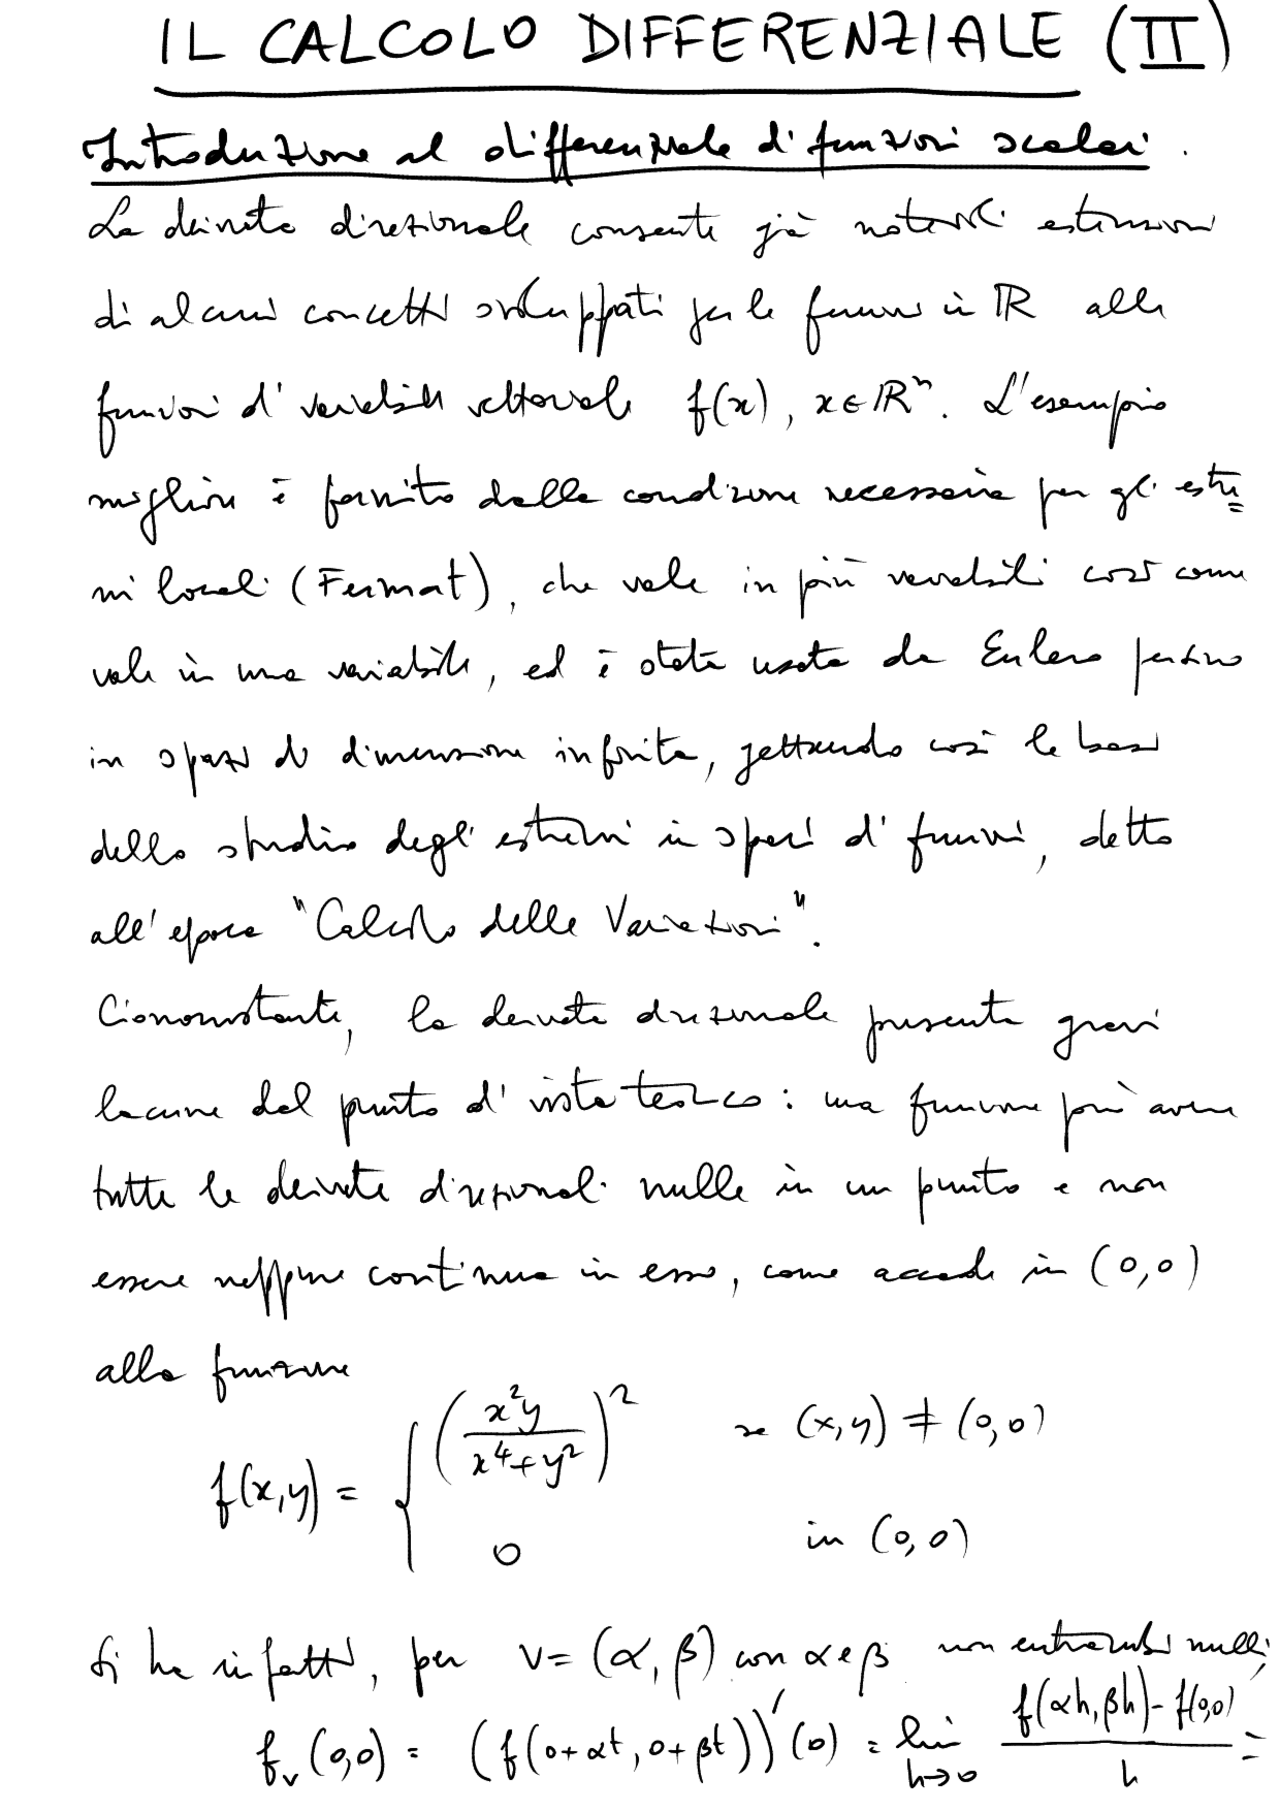 IL CALCOLO DIFFERENZIALE (II)
Introduzione al differenziale di funzioni scalari.
La derivata direzionale consente già notevoli estensioni
di alcuni concetti sviluppati per le funzioni in ℝ alle
funzioni di variabile vettoriale f(x), x∈ℝⁿ. L'esempio
migliore è fornito dalla condizione necessaria per gli estre
mi locali (Fermat), che vale in più variabili così come
vale in una variabile, ed è stata usata da Eulero persino
in spazi di dimensione infinita, gettando così le basi
dello studio degli estremi in spazi di funzioni, detto
all'epoca "Calcolo delle Variazioni".
Ciononostante, la derivata direzionale presenta gravi
lacune dal punto di vista teorico: una funzione può avere
tutte le derivate direzionali nulle in un punto e non
essere neppure continua in esso, come accade in (0,0)
alla funzione
f(x,y) = { (x²y / (x⁴+y²))² se (x,y) ≠ (0,0)
0 in (0,0)
Si ha infatti, per v = (α, β) con α e β non entrambi nulli,
f_v (0,0) = (f(0+αt, 0+βt))'(0) = lim_{h→0} (f(αh, βh) - f(0,0)) / h =